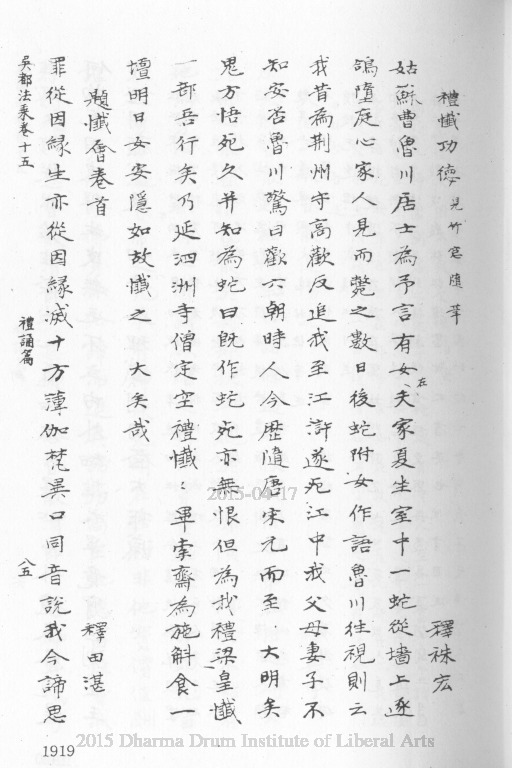 禮懺功德 見竹窓隨筆
釋祩宏
姑蘇曹魯川居士為予言有女在夫家夏坐室中一蛇從墻上逐
鴿墮庭心家人見而斃之數日後蛇附女作語魯川往視則云
我昔為荆州守高歡反追我至江滸遂死江中我父母妻子不
知安否魯川驚曰歡六朝時人今歷隨唐宋元而至大明矣
鬼方悟死久并知為蛇曰既作蛇死亦無恨但為我禮梁皇懺
一部吾行矣乃延泗洲寺僧定空禮懺懺畢索齋為施斛食一
壇明日女安隱如故懺之大矣哉
題懺會卷首
釋田湛
罪從因緣生亦從因緣滅十方薄伽梵異口同音說我今諦思
吳都法乘卷十五
禮誦篇
八五
1919
2015-04-17
2015 Dharma Drum Institute of Liberal Arts